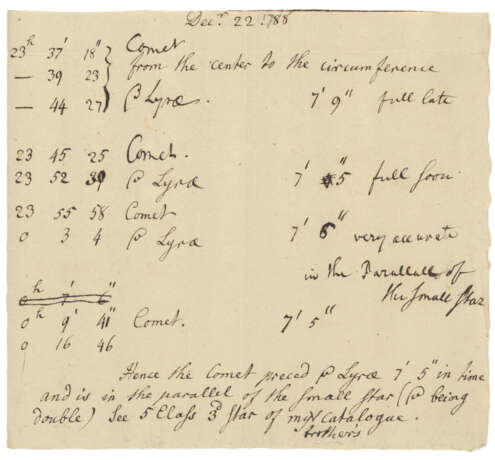 Decr. 22 1788
23h 37' 18" Comet
— 39 23 from the center to the circumference
— 44 27 β Lyræ. 7' 9" full late
23 45 25 Comet.
23 52 30 β Lyræ 7' 5" full soon
23 55 58 Comet
0 3 4 β Lyræ 7' 6" very accurate
in the Parallell of
the small star
0h 7' 6"
0h 9' 41" Comet. 7' 5"
0 16 46
Hence the Comet preced β Lyræ 7' 5" in time
and is in the parallel of the small star (β being
double) See 5 Class 3d star of my catalogue.
brother's